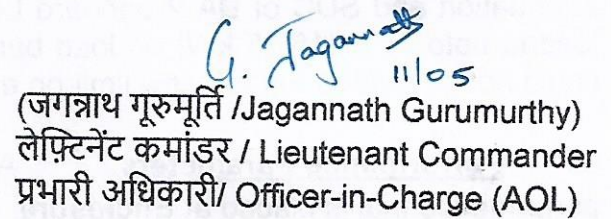 G. Jagannath
11/05
(जगन्नाथ गूरुमूर्ति /Jagannath Gurumurthy)
लेफ़्टिनेंट कमांडर / Lieutenant Commander
प्रभारी अधिकारी/ Officer-in-Charge (AOL)